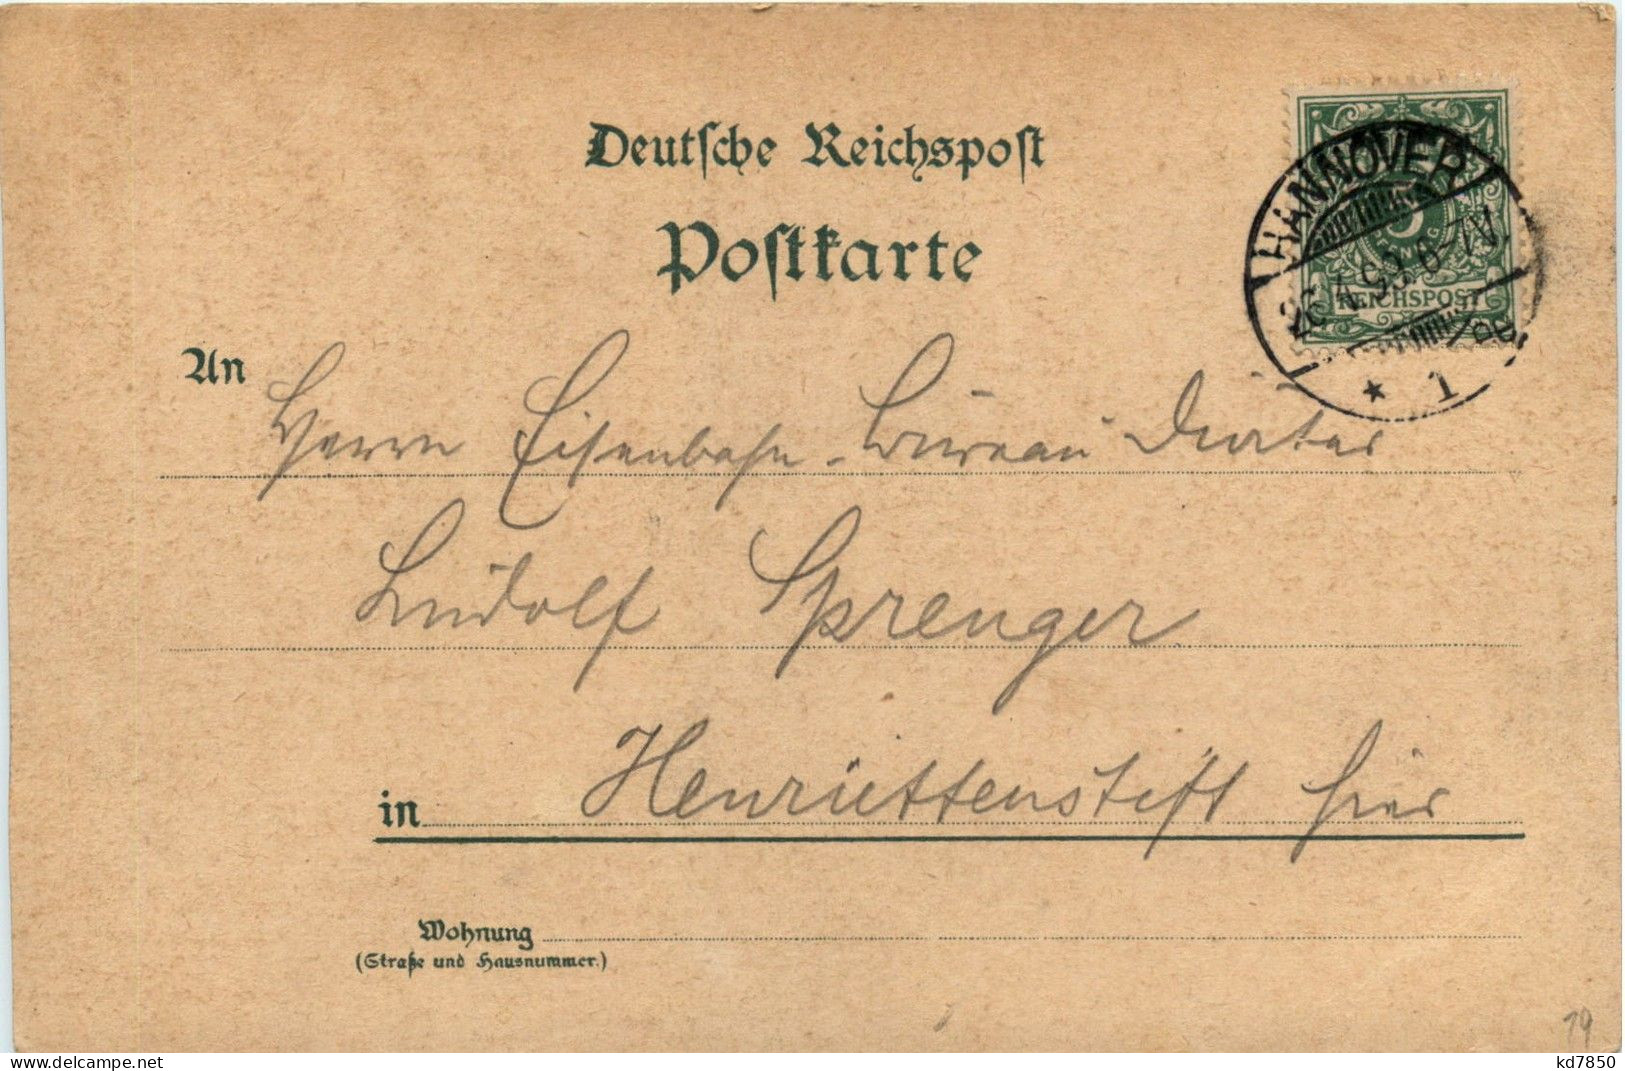 Deutsche Reichspost
Postkarte
HANNOVER
5
PFENNIG
REICHSPOST
* 1
An Herrn Eisenbahn-Büreau
Ludolf Sprenger
in Henriettenstift hier
Wohnung
(Straße und Hausnummer.)
19
DELCAMPE.NET
kd7850